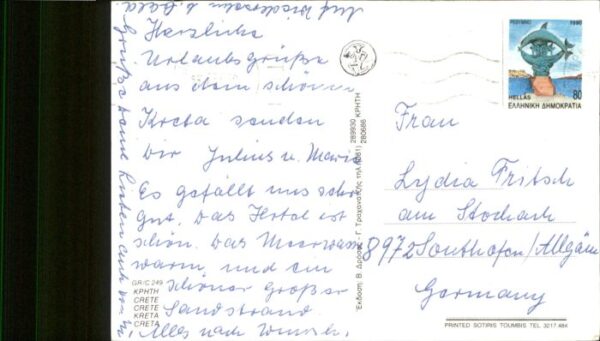 Herzliche
Urlaubsgrüße
aus dem schönen
Kreta senden
Dir Julius u. Maria
Es gefällt uns sehr
gut. Das Hotel ist
schön. Das Meerwasser
warm, und ein
schöner großer
Sandstrand
Alles nach Wunsch,
Grüße
Auf Wiedersehn b. Bald
GR/C 249
ΚΡΗΤΗ
CRETE
CRETE
KRETA
CRETA
Έκδοση: Β. Δρόσος - Γ. Τραχανατζής τηλ. (081)
289930 ΚΡΗΤΗ
280686
ΡΕΘΥΜΝΟ 1990
HELLAS 80
ΕΛΛΗΝΙΚΗ ΔΗΜΟΚΡΑΤΙΑ
Frau
Lydia Fritsch
am Stocach
8972 Sonthofen/Allgäu
Germany
PRINTED SOTIRIS TOUMBIS TEL. 3217.484